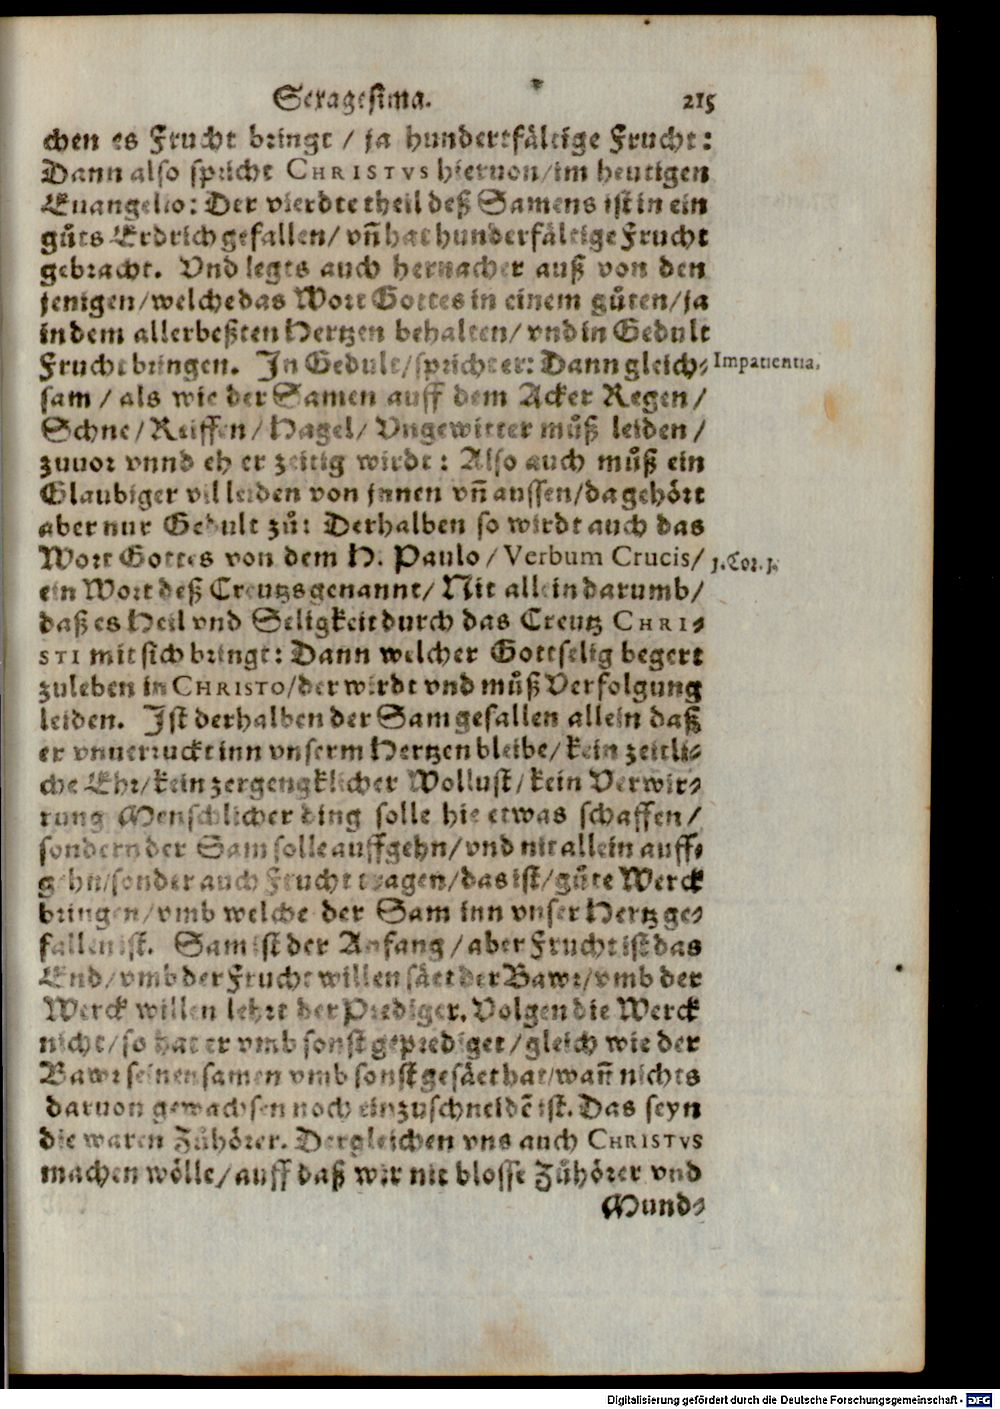 Sexagesima. 215
chen es Frucht bringt / ja hundertfältige Frucht:
Dann also spricht CHRISTVS hieruon/im heutigen
Euangelio: Der vierdte theil deß Samens ist in ein
gůts Erdrich gefallen/ vñ hat hunderfältige Frucht
gebracht. Vnd legts auch hernacher auß von den
jenigen/welche das Wort Gottes in einem gůten/ja
in dem allerbeßten Hertzen behalten/ vnd in Gedult
Frucht bringen. In Gedult/spricht er: Dann gleich⸗ Impatientia.
sam / als wie der Samen auff dem Acker Regen/
Schne/Reiffen/Hagel/ Vngewitter můß leiden/
zuuor vnnd eh er zeitig wirdt: Also auch můß ein
Glaubiger vil leiden von jnnen vñ aussen/da gehört
aber nur Gedult zů: Derhalben so wirdt auch das
Wort Gottes von dem H. Paulo/Verbum Crucis/ 1.Cor.1.
ein Wort deß Creutzs genannt/ Nit allein darumb/
daß es Heil vnd Seligkeit durch das Creutz CHRI⸗
STI mit sich bringt: Dann welcher Gottselig begert
zuleben in CHRISTO/der wirdt vnd můß Verfolgung
leiden. Ist derhalben der Sam gefallen allein daß
er vnuerruckt inn vnserm Hertzen bleibe/kein zeitli⸗
che Ehr/kein zergengklicher Wollust/kein Verwir⸗
rung Menschlicher ding solle hie etwas schaffen/
sondern der Sam solle auffgehn/vnd nit allein auff⸗
gehn/sonder auch Frucht tragen/das ist/gůte Werck
bringen/vmb welche der Sam inn vnser Hertz ge⸗
fallen ist. Sam ist der Anfang/aber Frucht ist das
End/vmb der Frucht willen säet der Bawr/vmb der
Werck willen lehrt der Prediger. Volgen die Werck
nicht/so hat er vmb sonst geprediget/gleich wie der
Bawr seinen samen vmb sonst gesäet hat/wañ nichts
daruon gewachsen noch einzuschneidẽ ist. Das seyn
die waren Zůhörer. Dergleichen vns auch CHRISTVS
machen wölle/auff daß wir nit blosse Zůhörer vnd
Mund⸗
Digitalisierung gefördert durch die Deutsche Forschungsgemeinschaft - DFG